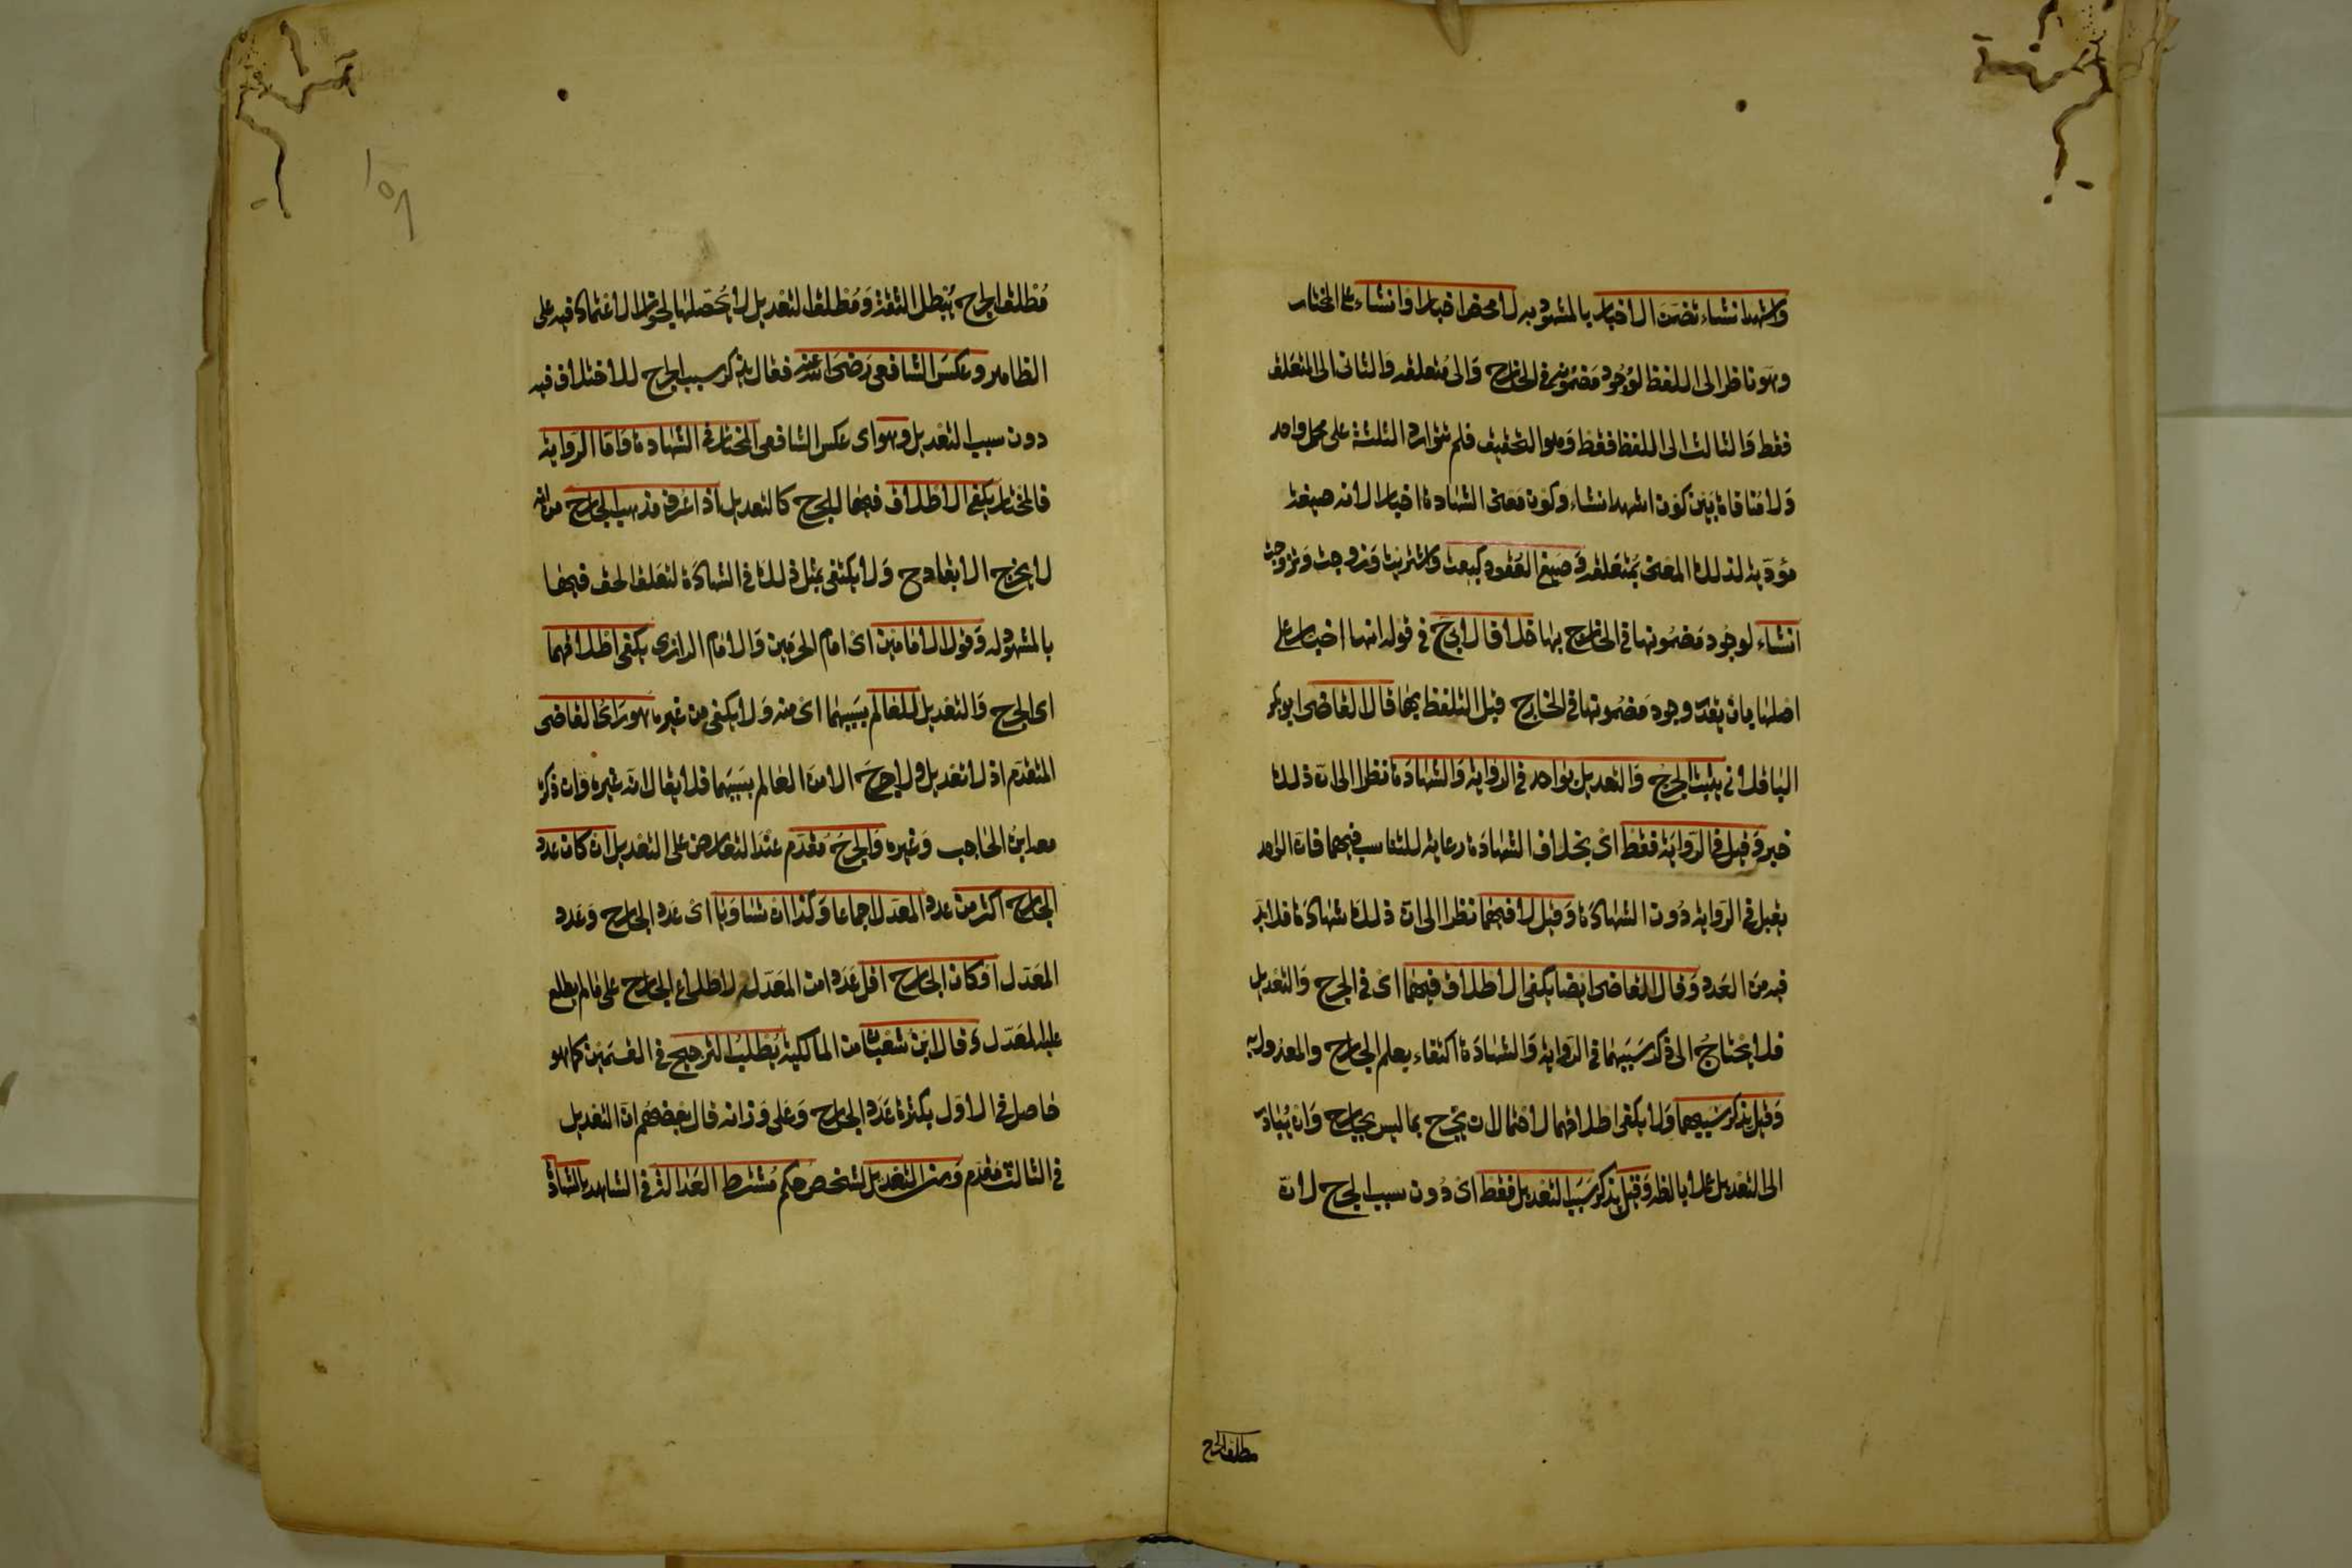 واشهد انشاء تضمن الاخبار بالمشهود به لا محض اخبار او انشاء على المختار
وهو ناظر الى اللفظ لوجود مضمونه في الخارج والى متعلقه والثاني الى المتعلق
فقط والثالث الى اللفظ فقط وهو التحقيق فلم تتوارد الثلثة على محل واحد
ولا منافاة بين كون اشهد انشاء وكون معنى الشهادة اخبارا لانه صيغة
مؤدية لذلك المعنى بمتعلقه وصيغ العقود كبعت واشتريت وزوجت وتزوجت
انشاء لوجود مضمونها في الخارج بها خلافا لابي ح في قوله انها اخبار على
اصلها بان يقدر وجود مضمونها في الخارج قبل التلفظ بها قال القاضي ابو بكر
الباقلاني يثبت الجرح والتعديل بواحد في الرواية والشهادة نظرا الى ان ذلك
خبر وقيل في الرواية فقط اي بخلاف الشهادة رعاية للتناسب فيهما فان الواحد
يقبل في الرواية دون الشهادة وقيل لا فيهما نظرا الى ان ذلك شهادة فلا بد
فيه من العدد وقال القاضي ايضا يكفي الاطلاق فيهما اي في الجرح والتعديل
فلا يحتاج الى ذكر سببهما في الرواية والشهادة اكتفاء بعلم الجارح والمعدل به
وقيل يذكر سببهما ولا يكفي اطلاقهما لاحتمال ان يجرح بما ليس بجارح وان يبادر
الى التعديل عملا بالظاهر وقيل يذكر سبب التعديل فقط اي دون سبب الجرح لان
مطلق الجرح
مطلق الجرح يبطل الثقة ومطلق التعديل لا يحصلها لجواز الاعتماد فيه على
الظاهر وعكس الشافعي رضي الله عنه فقال يذكر سبب الجرح للاختلاف فيه
دون سبب التعديل وهو اي عكس الشافعي المختار في الشهادة واما الرواية
فالمختار يكفي الاطلاق فيها للجرح كالتعديل اذا عرف مذهب الجارح من انه
لا يجرح الا بقادح ولا يكتفى بمثل ذلك في الشهادة لتعلق الحق فيها
بالمشهود له وقول الامامين اي امام الحرمين والامام الرازي يكفي اطلاقهما
اي الجرح والتعديل للعالم بسببهما اي منه ولا يكفي من غيره هو راى القاضي
المتقدم اذ لا تعديل ولا جرح الا من العالم بسببهما فلا يقال انه غيره وان ذكره
معه ابن الحاجب وغيره والجرح مقدم عند التعارض على التعديل ان كان عدد
الجارح اكثر من عدد المعدل اجماعا وكذا ان تساويا اي عدد الجارح وعدد
المعدل او كان الجارح اقل عددا من المعدل لاطلاع الجارح على ما لم يطلع
عليه المعدل وقال ابن شعبان من المالكية يطلب الترجيح في القسمين كما هو
حاصل في الاول بكثرة عدد الجارح وعلى وزانه قال بعضهم ان التعديل
في الثالث مقدم ومن التعديل لشخص حكم مشترط العدالة في الشاهد بالشهادة